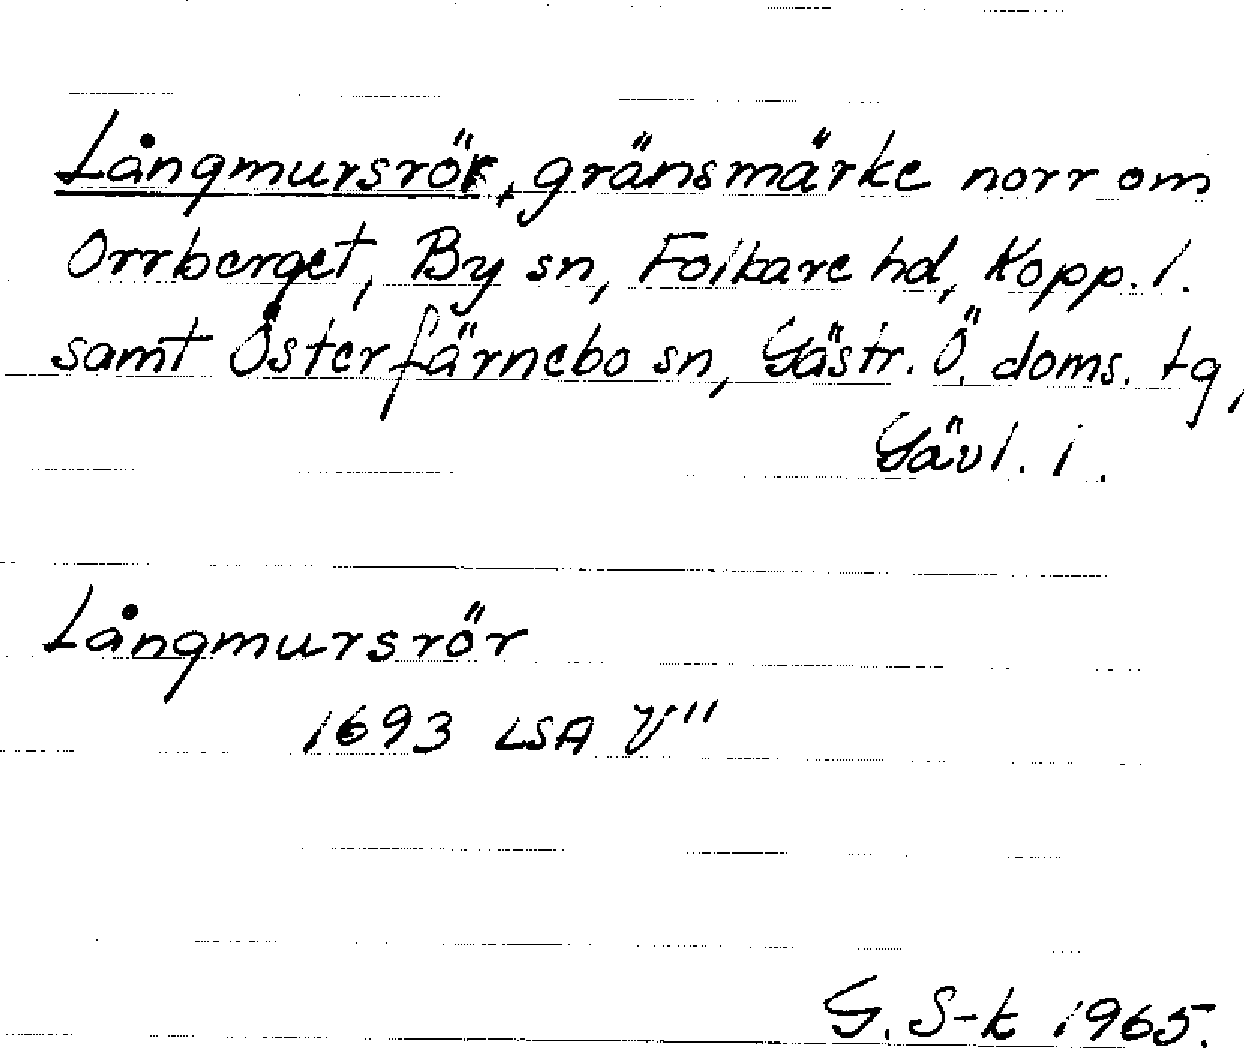 Långmursrör, gränsmärke norr om
Orrberget, By sn, Folkare hd, Kopp. l.
samt Österfärnebo sn, Gästr. Ö. doms. tg,
Gävl. l.
Långmursrör
1693 LSA V"
G. S-k 1965.